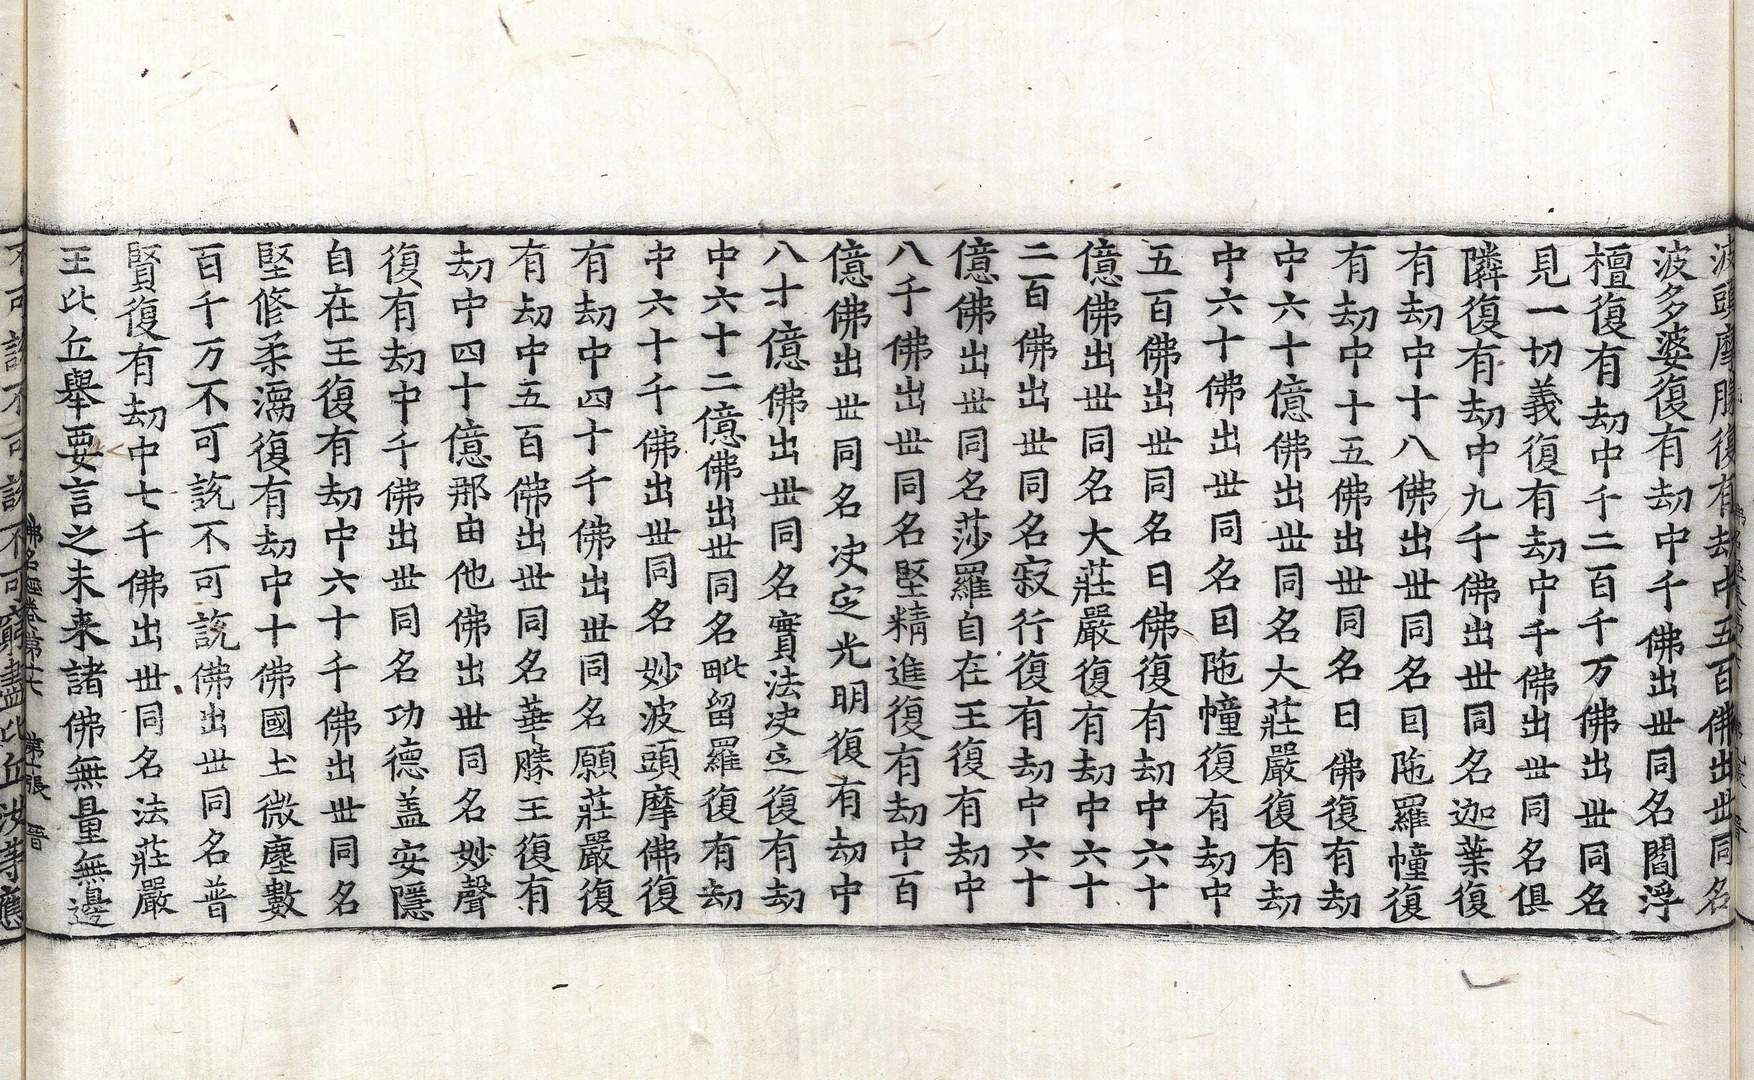 波頭摩勝復有劫中五百佛出丗同名
波多婆復有劫中千佛出丗同名閻浮
檀復有劫中千二百千万佛出丗同名
見一切義復有劫中千佛出丗同名俱
隣復有劫中九千佛出丗同名迦葉復
有劫中十八佛出丗同名曰陁羅幢復
有劫中十五佛出丗同名日佛復有劫
中六十億佛出丗同名大莊嚴復有劫
中六十佛出丗同名曰陁幢復有劫中
五百佛出丗同名日佛復有劫中六十
億佛出丗同名大莊嚴復有劫中六十
二百佛出丗同名寂行復有劫中六十
億佛出丗同名莎羅自在王復有劫中
八千佛出丗同名堅精進復有劫中百
億佛出丗同名决定光明復有劫中
八十億佛出丗同名實法决定復有劫
中六十二億佛出丗同名毗留羅復有劫
中六十千佛出丗同名妙波頭摩佛復
有劫中四十千佛出丗同名願莊嚴復
有劫中五百佛出丗同名華勝王復有
劫中四十億那由他佛出丗同名妙聲
復有劫中千佛出丗同名功德盖安隱
自在王復有劫中六十千佛出丗同名
堅修柔濡復有劫中十佛國土微塵數
百千万不可說不可說佛出丗同名普
賢復有劫中七千佛出丗同名法莊嚴
王比丘舉要言之未来諸佛無量無邊
佛名經卷第十六 第張 晉
不可說不可說不可窮盡比丘汝等應